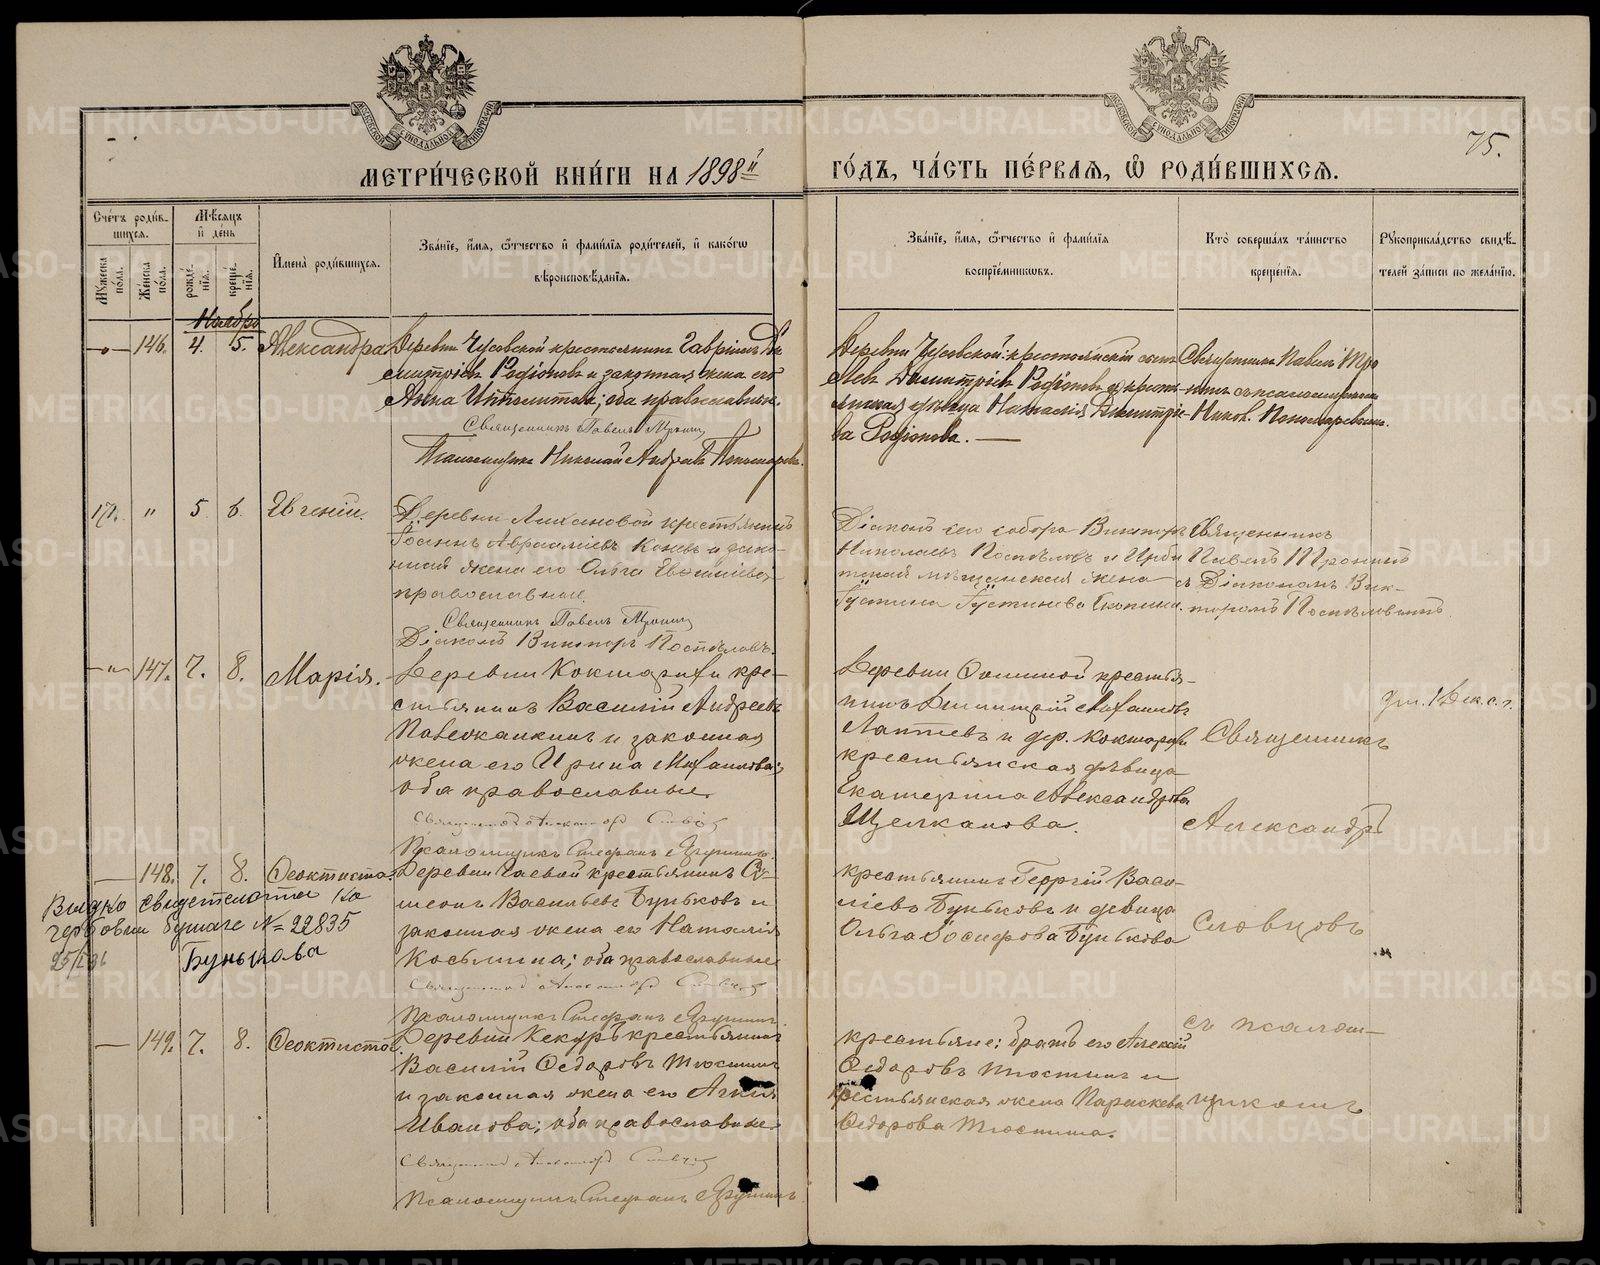 МЕТРИ́ЧЕСКОЙ КНИ́ГИ НА 1898й ГО́ДЪ, ЧА́СТЬ ПЕ́РВАЯ, Ѡ҆ РОДИ́ВШИХСЯ.
75.
Сче́тъ роди́в-
шихся.
Мꙋ́жеска по́ла.
Же́нска по́ла.
Мѣ́сяцъ
и҆ де́нь
рожде́нїя.
креще́нїя.
И҆мена̀ роди́вшихся.
Зва́нїе, и҆́мя, ѻ҆́тчество и҆ фами́лїя роди́телей, и҆ како́гѡ
вѣроисповѣ́данїя.
Зва́нїе, и҆́мя, ѻ҆́тчество и҆ фами́лїя
воспрїе́мникѡвъ.
Кто̀ соверша́лъ та́инство
креще́нїя.
Рꙋкоприкла́дство свидѣ́-
телей за́писи по жела́нїю.
Ноябрь
146. 4. 5. Александра
Деревни Чусовской крестьянинъ Гавріилъ Ди-
митріевъ Родіоновъ и законная жена его
Анна Ипполитова; оба православные.
Священникъ Павелъ
Псаломщикъ Николай Андреевъ Пономаревъ.
Деревни Чусовской: крестьянскій сынъ
Димитріевъ Родіоновъ и кресть-
янская дѣвица Димитріе-
ва Родіонова.
Священникъ Павелъ
съ псаломщикомъ
Никол. Пономаревымъ.
171. " 5 6. Евгеній.
Деревни крестьянинъ
Іоаннъ Авраамієвъ Коневъ и закон-
ная жена его Ольга
православные.
Священникъ Павелъ
Діаконъ Викторъ Поспѣловъ.
Діаконъ сего собора Викторъ
Николаевъ Поспѣловъ и Ирби-
тская мѣщанская жена
Іустина Іустинова
Священникъ
Павелъ
съ Діакономъ Вик-
торомъ Поспѣловымъ
" 147. 7. 8. Марія.
Деревни кре-
стьянинъ Василій Андреевъ
и законная
жена его Ирина Михаилова;
оба православные.
Священникъ Александръ Словцовъ
Псаломщикъ Стефанъ
Деревни кресть-
нинъ Димитрій
Лаптевъ и дер.
крестьянская дѣвица
Екатерина Александрова
Щелканова.
Священникъ
Александръ
Словцовъ
съ псалом-
щикомъ
ум. 1 Дек. с. г.
148. 7. 8. Феоктиста.
Деревни Гаевой крестьянинъ Си-
меонъ Васильевъ Буньковъ и
законная жена его Наталія
Косьмина; оба православные
Священникъ Александръ Словцовъ
Псаломщикъ Стефанъ
крестьянинъ Георгій Васи-
ліевъ Буньковъ и дѣвица
Ольга Іосифова Бунькова
Выдано свидетельство на
гербовой бумаге № 22835
Бунькова
149. 7. 8. Феоктиста.
Деревни Кекуръ крестьянинъ
Василій Федоровъ Тюстинъ
и законная жена его Агнія
Иванова; оба православные.
Священникъ Александръ Словцовъ
Псаломщикъ Стефанъ
крестьяне: братъ его Алексій
Федоровъ Тюстинъ и
крестьянская жена Параскева
Федорова Тюстина.